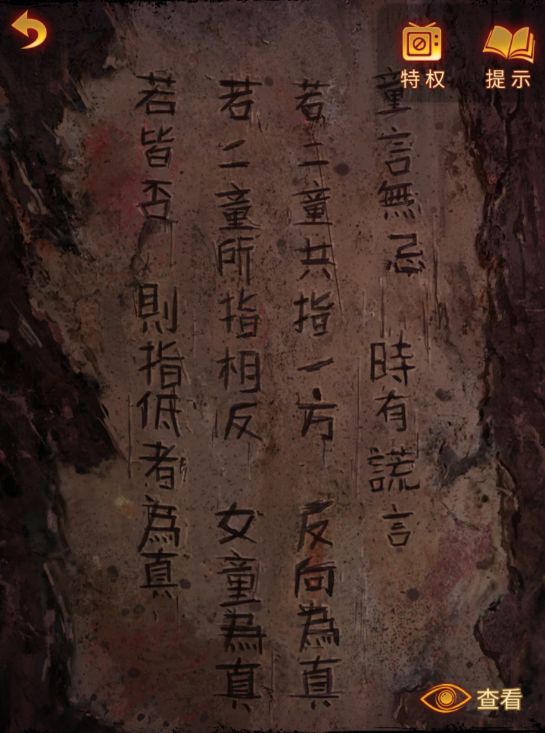 特权
提示
童言無忌 時有謊言
若二童共指一方 反向為真
若二童所指相反 女童為真
若皆否 則指低者為真
查看